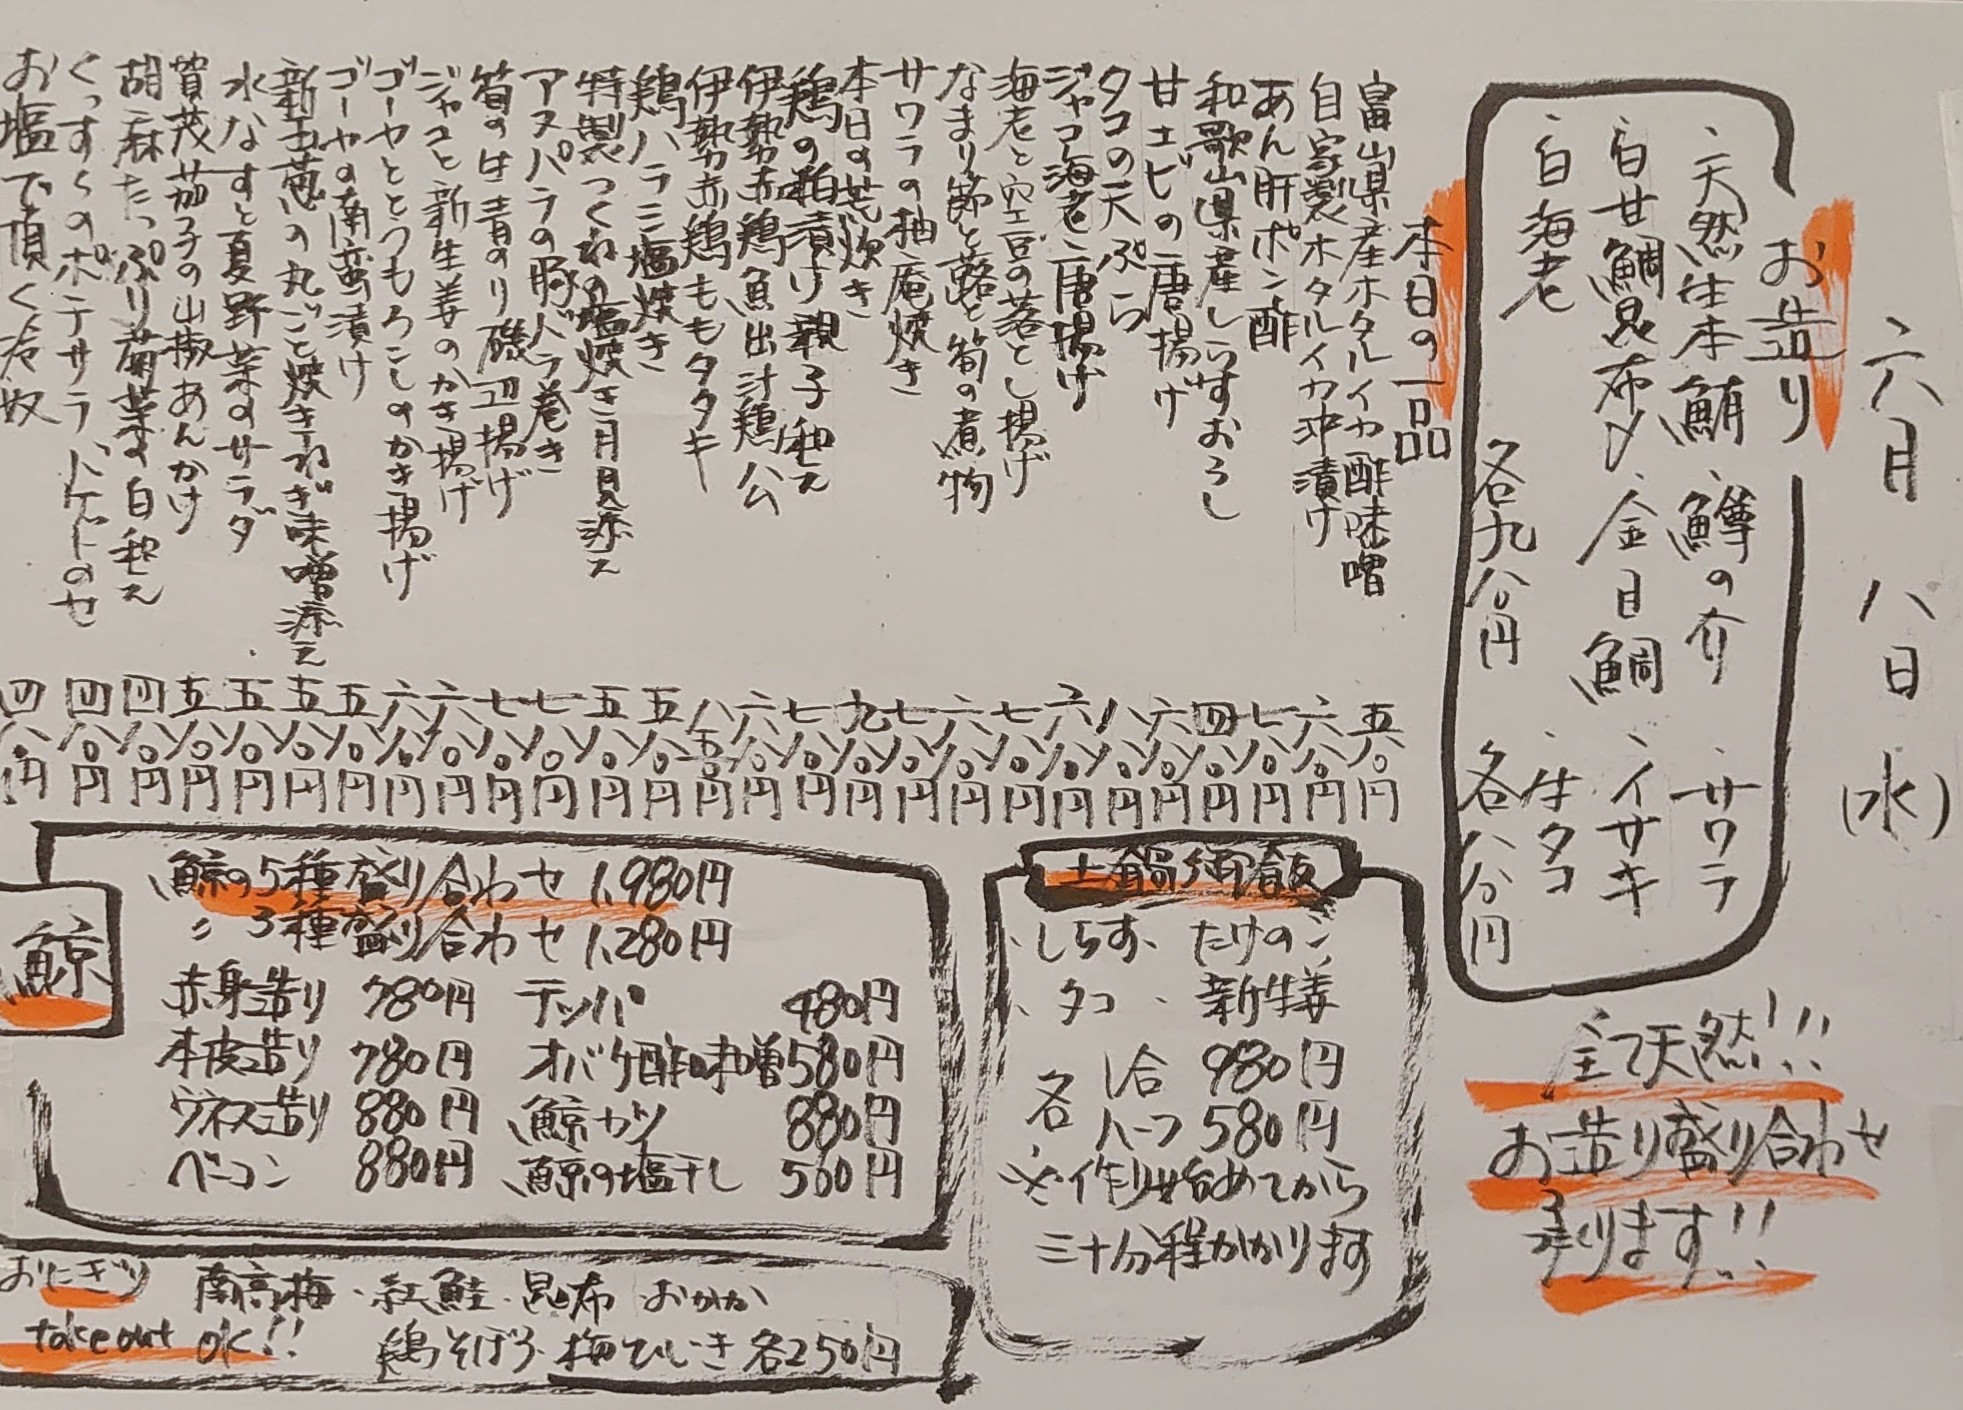 六月 八日 (水)
お造り
・天然生本鮪 ・鱒の介 ・サワラ
・白甘鯛昆布〆 ・金目鯛 ・イサキ
・白海老 ・生タコ
各九八〇円 各八八〇円
全て天然!!!
お造り盛り合わせ
承ります!!
本日の一品
富山県産ホタルイカ酢味噌 五八〇円
自家製ホタルイカ沖漬け 六八〇円
あん肝ポン酢 七八〇円
和歌山県産しらすおろし 四八〇円
甘エビの唐揚げ 六八〇円
タコの天ぷら 八八〇円
ジャコ海老唐揚げ 六八〇円
海老と空豆の落とし揚げ 七八〇円
なまり節と蕗と筍の煮物 六八〇円
サワラの柚庵焼き 七八〇円
本日の荒炊き 九八〇円
鶏の粕漬け親子和え 七八〇円
伊勢赤鶏魚出汁鶏公 六八〇円
伊勢赤鶏ももタタキ 八五〇円
鶏ハラミ塩焼き 五八〇円
特製つくねの塩焼き月見添え 五八〇円
アスパラの豚バラ巻き 七八〇円
筍の生青のり磯辺揚げ 七八〇円
ジャコと新生姜のかき揚げ 六八〇円
ゴーヤととうもろこしのかき揚げ 六八〇円
ゴーヤの南蛮漬け 五八〇円
新玉葱の丸ごと焼きネギ味噌添え 五八〇円
水なすと夏野菜のサラダ 五八〇円
賀茂茄子の山椒あんかけ 五八〇円
胡麻たっぷり菊菜の白和え 四八〇円
ポテサラバゲットのせ 四八〇円
お塩で頂く冷奴 四八〇円
土鍋御飯
・しらす ・たけのこ
・タコ ・新生姜
各 1合 980円
ハーフ 580円
※作り始めてから
三十分程かかります
鯨
鯨の5種盛り合わせ 1,980円
〃 3種盛り合わせ 1,280円
赤身造り 780円 テッパ 480円
本皮造り 780円 オバケ酢味噌 580円
ウネス造り 880円 鯨カツ 880円
ベーコン 880円 鯨の塩干し 500円
おにぎり 南高梅・紅鮭・昆布・おかか
take out OK!! 鶏そぼろ・梅ひじき 各250円